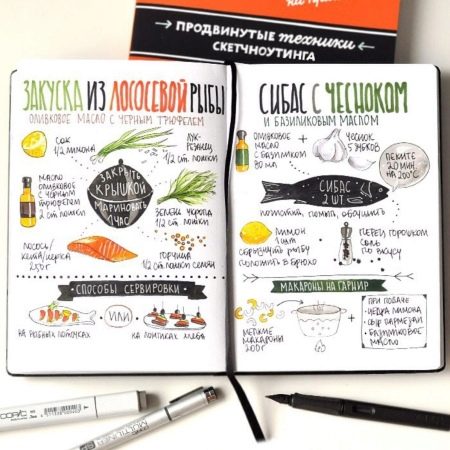 ПРОДВИНУТЫЕ техники
СКЕТЧНОУТИНГА
ЗАКУСКА ИЗ ЛОСОСЕВОЙ РЫБЫ
ОЛИВКОВОЕ МАСЛО С ЧЕРНЫМ ТРЮФЕЛЕМ
СОК
1/2 ЛИМОНА
ЛУК-
РЕЗАНЕЦ
1/2 СТ. ЛОЖКИ
МАСЛО
ОЛИВКОВОЕ
С ЧЕРНЫМ
ТРЮФЕЛЕМ
2 СТ ЛОЖКИ
ЗАКРЫТЬ
КРЫШКОЙ
МАРИНОВАТЬ
1 ЧАС
ЗЕЛЕНЬ УКРОПА
1/2 СТ. ЛОЖКИ
ЛОСОСЬ/
КЕТА/НЕРКА
250 г
ГОРЧИЦА
1/2 СТ. ЛОЖКИ СЕМЯН
СПОСОБЫ СЕРВИРОВКИ
ИЛИ
НА РЫБНЫХ ЛОТОЧКАХ
НА ЛОМТИКАХ ХЛЕБА
СИБАС С ЧЕСНОКОМ
И БАЗИЛИКОВЫМ МАСЛОМ
ОЛИВКОВОЕ
МАСЛО
С БАЗИЛИКОМ
80 МЛ
ЧЕСНОК
6 ЗУБКОВ
ПЕКИТЕ
20 МИН.
НА 200°С
СИБАС
2 ШТ
ПОЧИСТИТЬ, ПОМЫТЬ, ОБСУШИТЬ
ЛИМОН
1 ШТ
СБРЫЗНУТЬ РЫБУ
ПОЛОЖИТЬ В БРЮХО
ПЕРЕЦ ГОРОШКОМ
СОЛЬ
ПО ВКУСУ
МАКАРОНЫ НА ГАРНИР
МЕЛКИЕ
МАКАРОНЫ
200 г
ПРИ ПОДАЧЕ
• ЦЕДРА ЛИМОНА
• СЫР ПАРМЕЗАН
• БАЗИЛИКОВОЕ
МАСЛО
COPIC
MULTILINER